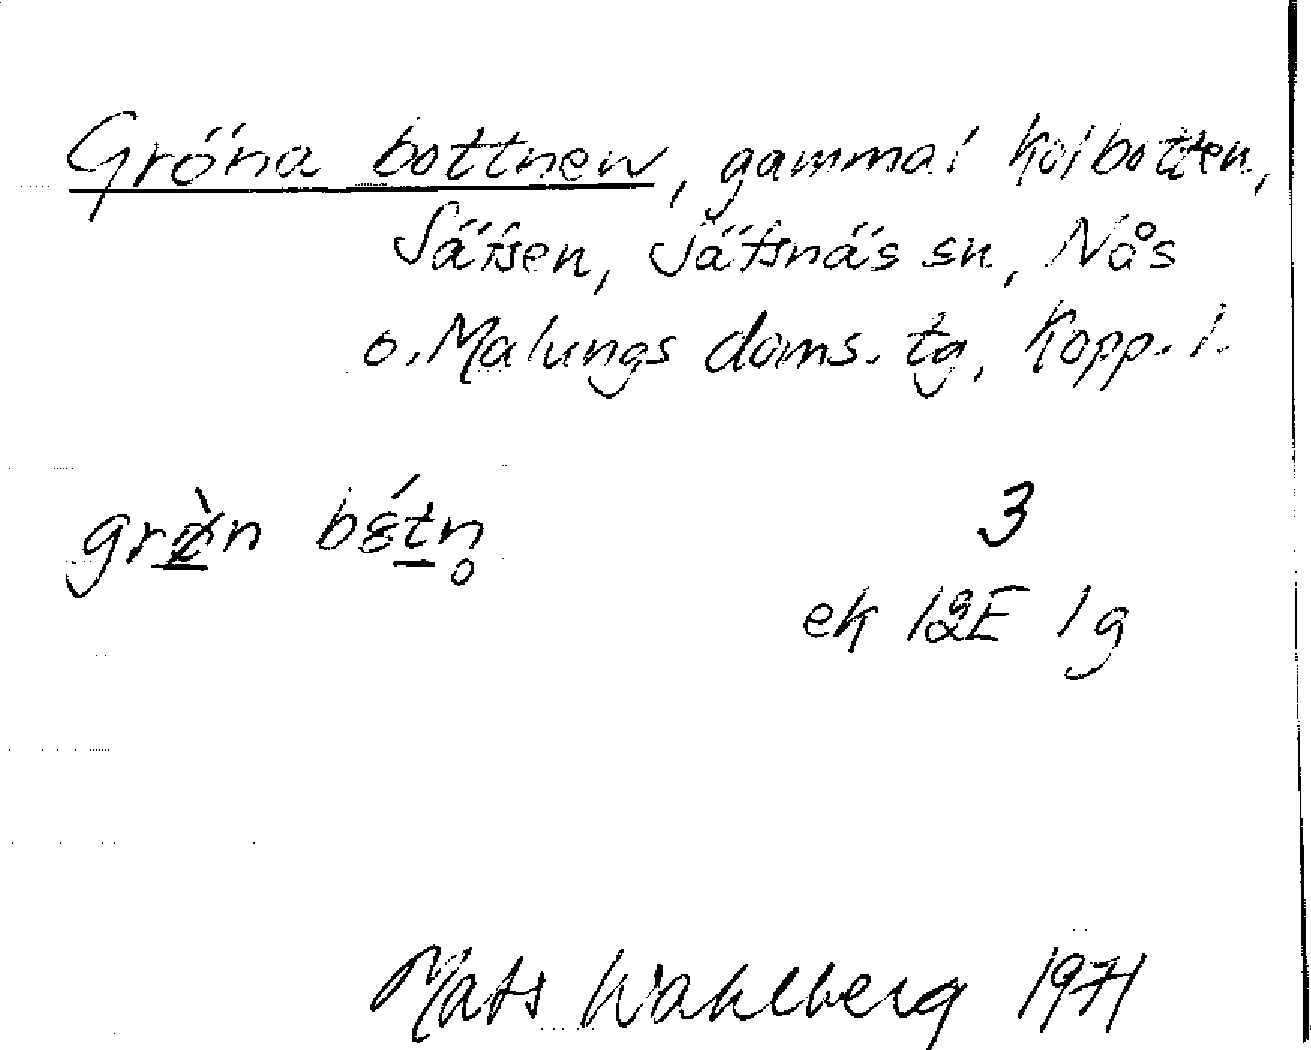 Gröna bottnen, gammal kolbotten,
Sätsen, Järnäs sn, Nås
o. Malungs doms. tg, Kopp. l.
3
ek 12E 1g
Mats Wahlberg 1971